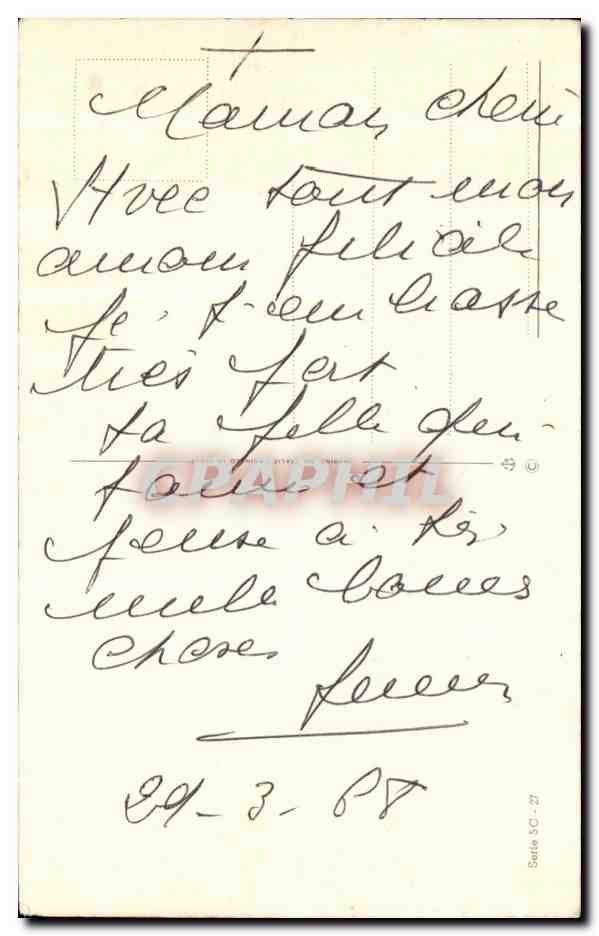 Maman chérie
Avec tout mon
amour filiale
je t'embrasse
très fort
ta fille qui
t'aime et
pense à toi
mille bonnes
choses
29-3-68
CPAPHIL
©
Serie SC - 27